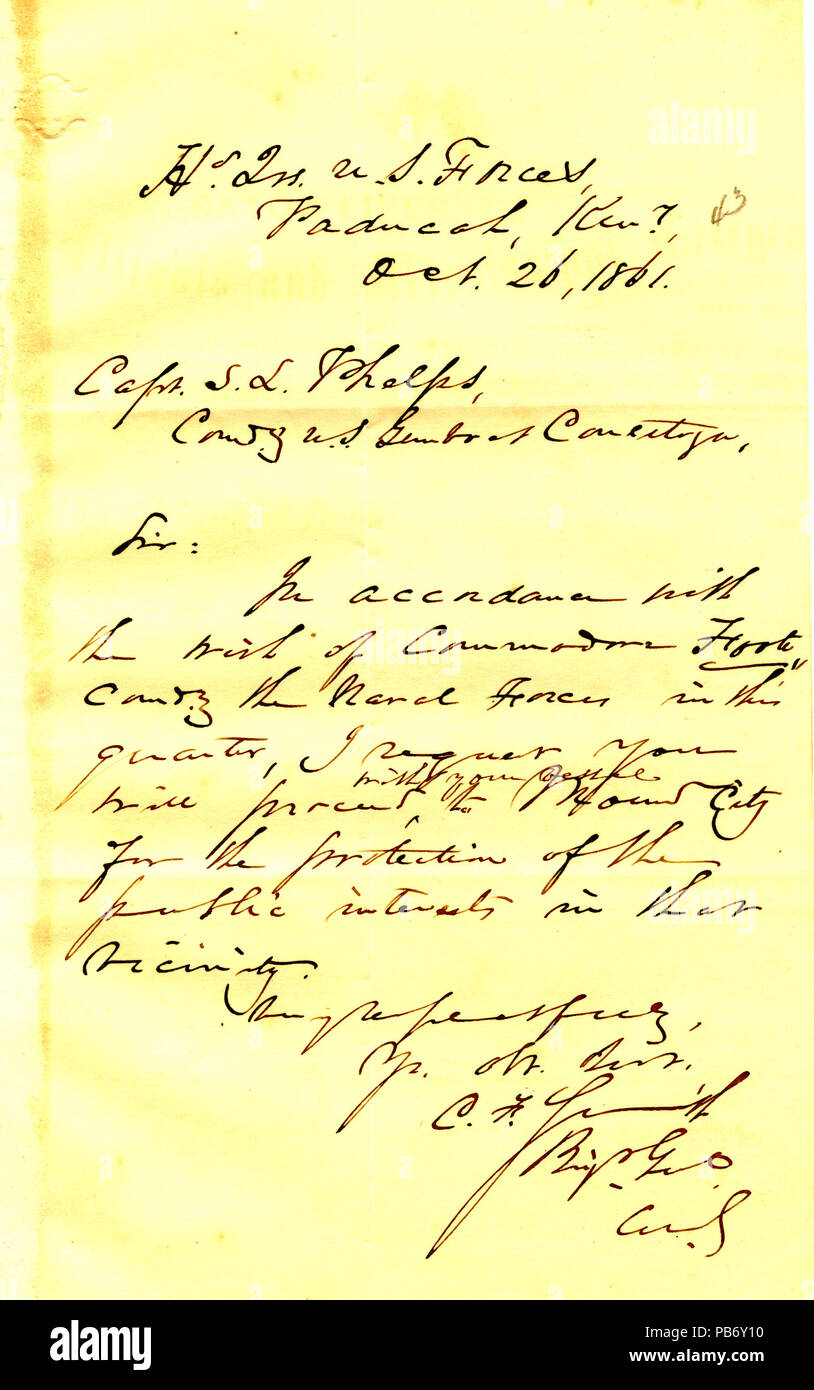 Hd. Qrs. U.S. Forces,
Paducah, Keny.,
43
Oct. 26, 1861.
Capt. S. L. Phelps,
Comdg U.S. Gunboat Conestoga,
Sir:
In accordance with
the wish of Commodore Foote
Comdg the Naval Forces in this
quarter, I request you
with your vessel
will proceed, to Mound City
for the protection of the
public interests in that
vicinity.
Very respectfully,
Yr. obt. Servt.,
C. F. Smith
Brigr Genl.
Comdg
alamy
alamy
alamy
alamy
Image ID: PB6Y10
www.alamy.com